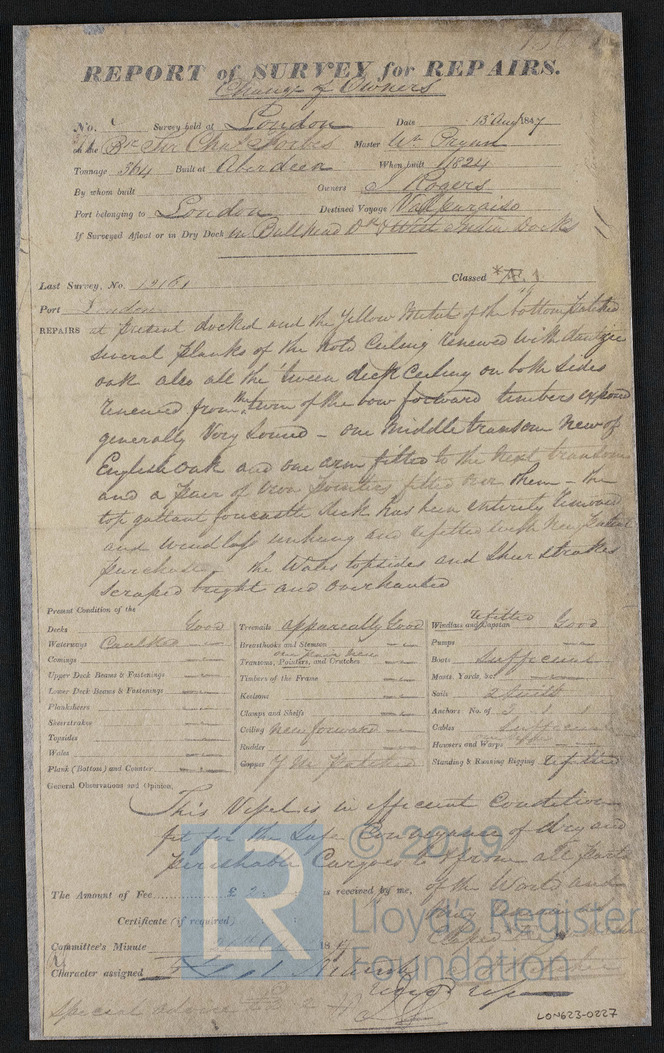 REPORT of SURVEY for REPAIRS.
Change of Owners
No. Survey held at London Date 13 Aug 1847
on the Bn Sir Chas Forbes Master Wm Bryan
Tonnage 364 Built at Aberdeen When built 1824
By whom built Owners Rogers
Port belonging to London Destined Voyage Valparaiso
If Surveyed Afloat or in Dry Dock in Bullhead Dk & West India Docks
Last Survey, No. Classed *Æ 1
Port London
REPAIRS at present docked and the Yellow Metal of the bottom patched
several planks of the hold Ceiling renewed with dantzic
oak also all the tween deck Ceiling on both sides
renewed from the turn of the bow forward timbers exposed
generally Very Sound – one Middle transom New of
English oak and one arm fitted to the next transom
and a pair of iron pointers fitted over them – the
top gallant forecastle deck has been entirely renewed
and windlass unhung and refitted with new patent
purchase. The Wales topsides and Sheerstrakes
scraped bright and overhauled
Present Condition of the
Decks Good
Waterways Caulked
Comings
Upper Deck Beams & Fastenings
Lower Deck Beams & Fastenings
Planksheers
Sheerstrakes
Topsides
Wales
Plank (Bottom) and Counter
Treenails apparently Good
Breasthooks and Stemson
Transoms, Pointers, and Crutches
Timbers of the Frame
Keelsons
Clamps and Shelfs
Ceiling New forward
Rudder
Copper Y M patched
Refitted
Windlass and Capstan Good
Pumps
Boats Sufficient
Masts, Yards, &c.
Sails
Anchors No. of
Cables Sufficient
Hawsers and Warps
Standing & Running Rigging refitted
General Observations and Opinion,
This Vessel is in efficient Condition
fit for the Safe Conveyance of dry and
perishable Cargoes to & from all parts
of the World and
The Amount of Fee £ 2 is received by me,
Certificate (if required)
Committee's Minute 184
Character assigned
© 2019
Lloyd's Register
Foundation
LR
LON623-0227